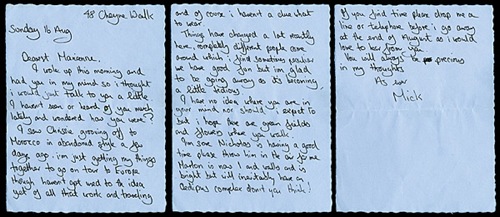 48 Cheyne Walk
Sunday 16 Aug
Dearest Marianne,
I woke up this morning and
had you in my mind so i thought
i would just talk to you a little
I haven't seen or heard of you much
lately and wondered how you were?
I saw Chrissie grooving off to
Morocco in abandoned style a few
days ago. im just getting my things
together to go on tour to Europe
though haven't got used to the idea
yet of all that work and traveling
and of course i haven't a clue what
to wear.
Things have changed a lot recently
here, completely different people come
around which i find sometimes peculiar
we have good fun but im glad
to be going away as its becoming
a little tedious.
I have no idea where you are in
your mind nor should i expect to
but i hope there are green fields
and flowers where you walk.
Im sure Nicholas is having a good
time please throw him in the air for me
Marlon is now 1 and walks and is
bright but will inevitably have an
Oedipus complex don't you think!
If you find time please drop me a
line or telephone before i go away
at the end of August as i would
love to hear from you.
You will always be precious
in my thoughts
As ever
Mick